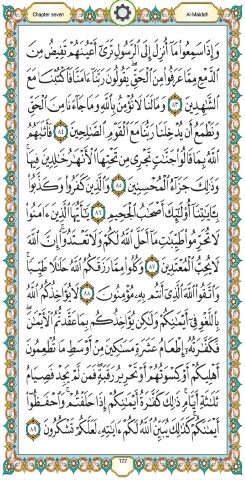 Chapter seven
Al-Maidah
وَإِذَا سَمِعُوا۟ مَآ أُنزِلَ إِلَى ٱلرَّسُولِ تَرَىٰٓ أَعْيُنَهُمْ تَفِيضُ مِنَ
ٱلدَّمْعِ مِمَّا عَرَفُوا۟ مِنَ ٱلْحَقِّ يَقُولُونَ رَبَّنَآ ءَامَنَّا فَٱكْتُبْنَا مَعَ
ٱلشَّٰهِدِينَ ٨٣ وَمَا لَنَا لَا نُؤْمِنُ بِٱللَّهِ وَمَا جَآءَنَا مِنَ ٱلْحَقِّ
وَنَطْمَعُ أَن يُدْخِلَنَا رَبُّنَا مَعَ ٱلْقَوْمِ ٱلصَّٰلِحِينَ ٨٤ فَأَثَٰبَهُمُ
ٱللَّهُ بِمَا قَالُوا۟ جَنَّٰتٍ تَجْرِى مِن تَحْتِهَا ٱلْأَنْهَٰرُ خَٰلِدِينَ فِيهَا
وَذَٰلِكَ جَزَآءُ ٱلْمُحْسِنِينَ ٨٥ وَٱلَّذِينَ كَفَرُوا۟ وَكَذَّبُوا۟
بِـَٔايَٰتِنَآ أُو۟لَٰٓئِكَ أَصْحَٰبُ ٱلْجَحِيمِ ٨٦ يَٰٓأَيُّهَا ٱلَّذِينَ ءَامَنُوا۟
لَا تُحَرِّمُوا۟ طَيِّبَٰتِ مَآ أَحَلَّ ٱللَّهُ لَكُمْ وَلَا تَعْتَدُوٓا۟ إِنَّ ٱللَّهَ
لَا يُحِبُّ ٱلْمُعْتَدِينَ ٨٧ وَكُلُوا۟ مِمَّا رَزَقَكُمُ ٱللَّهُ حَلَٰلًا طَيِّبًا
وَٱتَّقُوا۟ ٱللَّهَ ٱلَّذِىٓ أَنتُم بِهِۦ مُؤْمِنُونَ ٨٨ لَا يُؤَاخِذُكُمُ ٱللَّهُ
بِٱللَّغْوِ فِىٓ أَيْمَٰنِكُمْ وَلَٰكِن يُؤَاخِذُكُم بِمَا عَقَّدتُّمُ ٱلْأَيْمَٰنَ
فَكَفَّٰرَتُهُۥٓ إِطْعَامُ عَشَرَةِ مَسَٰكِينَ مِنْ أَوْسَطِ مَا تُطْعِمُونَ
أَهْلِيكُمْ أَوْ كِسْوَتُهُمْ أَوْ تَحْرِيرُ رَقَبَةٍ فَمَن لَّمْ يَجِدْ فَصِيَامُ
ثَلَٰثَةِ أَيَّامٍ ذَٰلِكَ كَفَّٰرَةُ أَيْمَٰنِكُمْ إِذَا حَلَفْتُمْ وَٱحْفَظُوٓا۟
أَيْمَٰنَكُمْ كَذَٰلِكَ يُبَيِّنُ ٱللَّهُ لَكُمْ ءَايَٰتِهِۦ لَعَلَّكُمْ تَشْكُرُونَ ٨٩
122